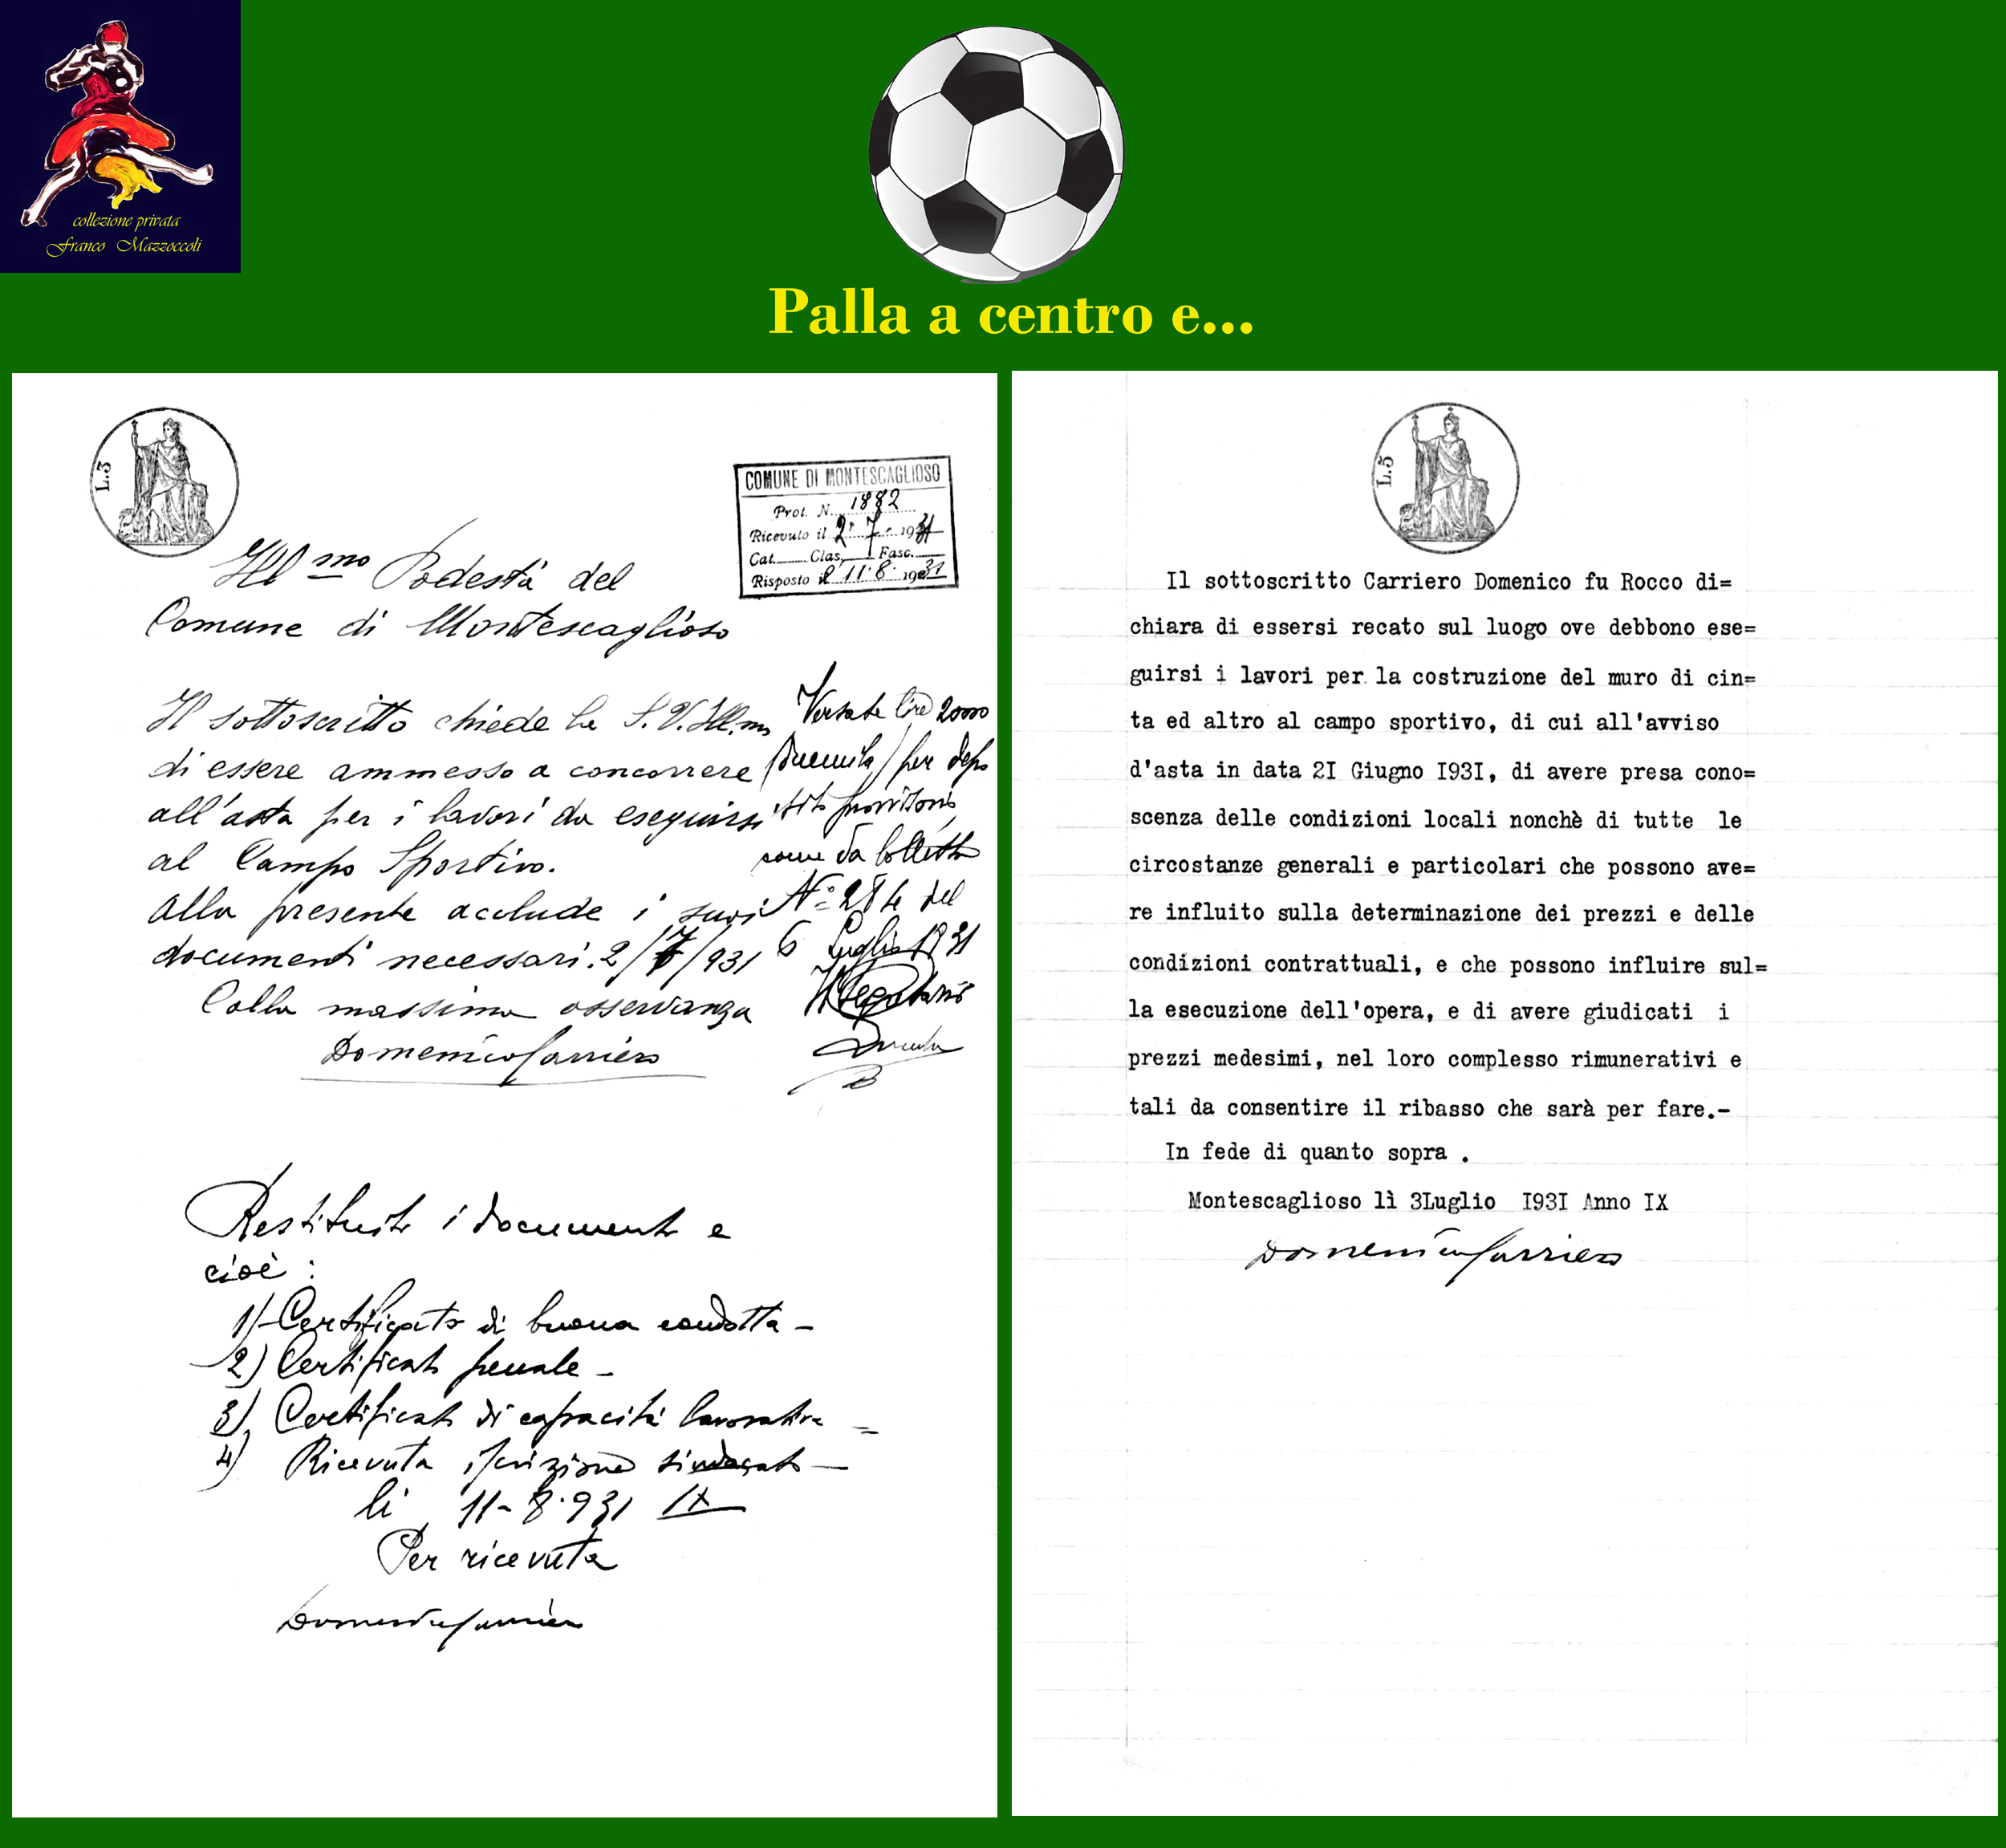 collezione privata
Franco Mazzoccoli
Palla a centro e...
L.3
COMUNE DI MONTESCAGLIOSO
Prot. N. 1882
Ricevuto il 2 7 1931
Cat. Clas. Fasc.
Risposto il 11.8.1931
Ill mo Podestà del
Comune di Montescaglioso
Il sottoscritto chiede la S.V.Ill.ma
di essere ammesso a concorrere
all'asta per i lavori da eseguirsi
al Campo Sportivo.
Alla presente acclude i suoi
documenti necessari. 2/7/931
Colla massima osservanza
Domenico Carriero
Versate lire 2000
(duemila) per depo
sito provvisorio
come da bolletta
N° 284 del
6 Luglio 1931
Il Segretario
Restituiti i documenti e
cioè :
1) Certificato di buona condotta -
2) Certificato penale -
3) Certificato di capacità lavorativa =
4) Ricevuta iscrizione sindacato -
lì 11-8.931 IX
Per ricevuta
Domenico Carriero
L.5
Il sottoscritto Carriero Domenico fu Rocco di=
chiara di essersi recato sul luogo ove debbono ese=
guirsi i lavori per la costruzione del muro di cin=
ta ed altro al campo sportivo, di cui all'avviso
d'asta in data 2I Giugno I93I, di avere presa cono=
scenza delle condizioni locali nonchè di tutte le
circostanze generali e particolari che possono ave=
re influito sulla determinazione dei prezzi e delle
condizioni contrattuali, e che possono influire sul=
la esecuzione dell'opera, e di avere giudicati i
prezzi medesimi, nel loro complesso rimunerativi e
tali da consentire il ribasso che sarà per fare.-
In fede di quanto sopra .
Montescaglioso lì 3Luglio I93I Anno IX
Domenico Carriero